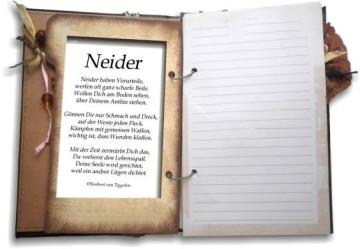 Neider
Neider haben Vorurteile,
werfen oft ganz scharfe Beile.
Wollen Dich am Boden sehen,
über Deinem Antlitz stehen.
Gönnen Dir nur Schmach und Dreck,
auf der Weste jeden Fleck.
Kämpfen mit gemeinen Waffen,
wichtig ist, dass Wunden klaffen.
Mit der Zeit zermürbt Dich das,
Du verlierst den Lebensspaß.
Deine Seele wird gerichtet,
weil ein andrer Lügen dichtet.
©Norbert van Tiggelen